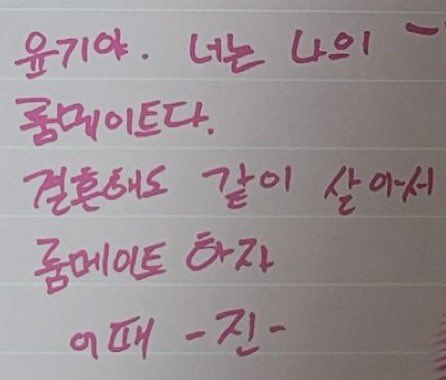 윤기야. 너는 나의
룸메이트다.
결혼해도 같이 살아서
룸메이트 하자
어때 -진-